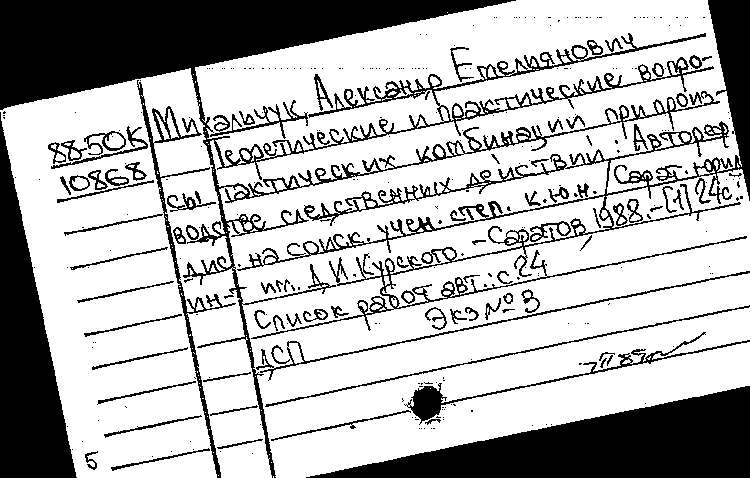 88-50К Михальчук, Александр Емельянович
10868 Теоретические и практические вопро-
сы тактических комбинаций при произ-
водстве следственных действий: Автореф.
дис. на соиск. учен. степ. к.ю.н. / Сарат. юрид.
ин-т им. Д.И.Курского. - Саратов, 1988.-[1], 24с.:
Список работ авт.: с.24
Экз № 3
ДСП
5